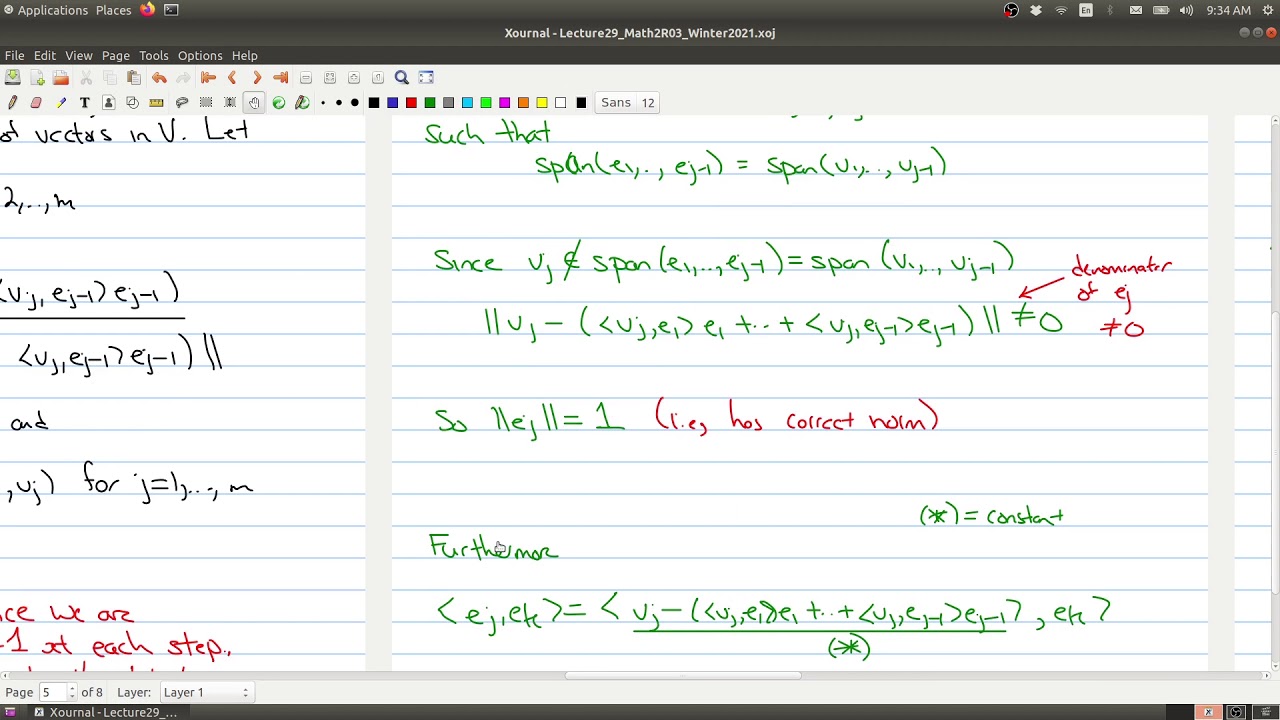 Applications Places En 9:34 AM
Xournal - Lecture29_Math2R03_Winter2021.xoj
File Edit View Page Tools Options Help
Sans 12
of vectors in V. Let
2,..,m
<vj, ej-1> ej-1)
<vj, ej-1> ej-1) ||
and
, vj) for j=1,..., m
we are
-1 at each step.
such that
span(e1,.., ej-1) = span(v1,.., vj-1)
Since vj ∉ span(e1,..., ej-1) = span (v1,.., vj-1)
denominator
of ej
≠0
|| vj - (<vj, e1> e1 + ... + <vj, ej-1> ej-1) || ≠ 0
So ||ej|| = 1 (i.e, has correct norm)
(*) = constant
Furthermor
<ej, ek> = < vj - (<vj, e1> e1 + ... + <vj, ej-1> ej-1) , ek>
(*)
Page 5 of 8 Layer: Layer 1
Xournal - Lecture29_...